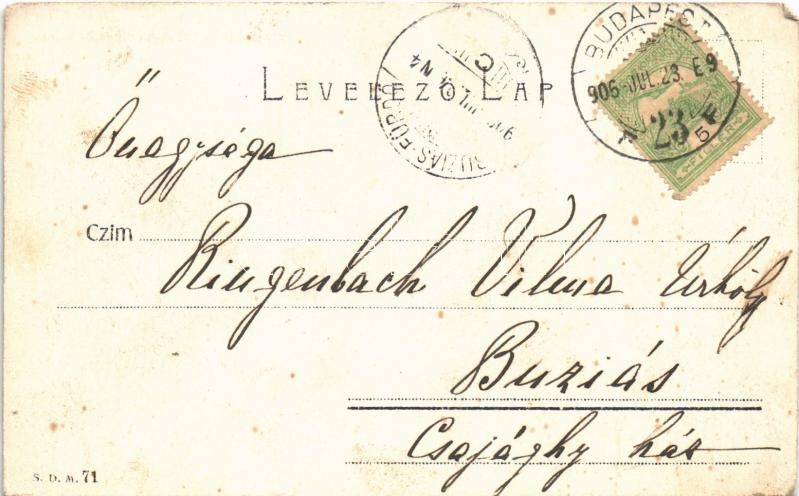 BUDAPEST
905 JUL. 23. E9
23
5
FILLÉR
BUZIÁS-FÜRDŐ
N4
LEVELEZŐ LAP
Őnagysága
Czim
Ringenbach Vilma Urhölgy
Buziás
Csajághy ház
S. D. M. 71